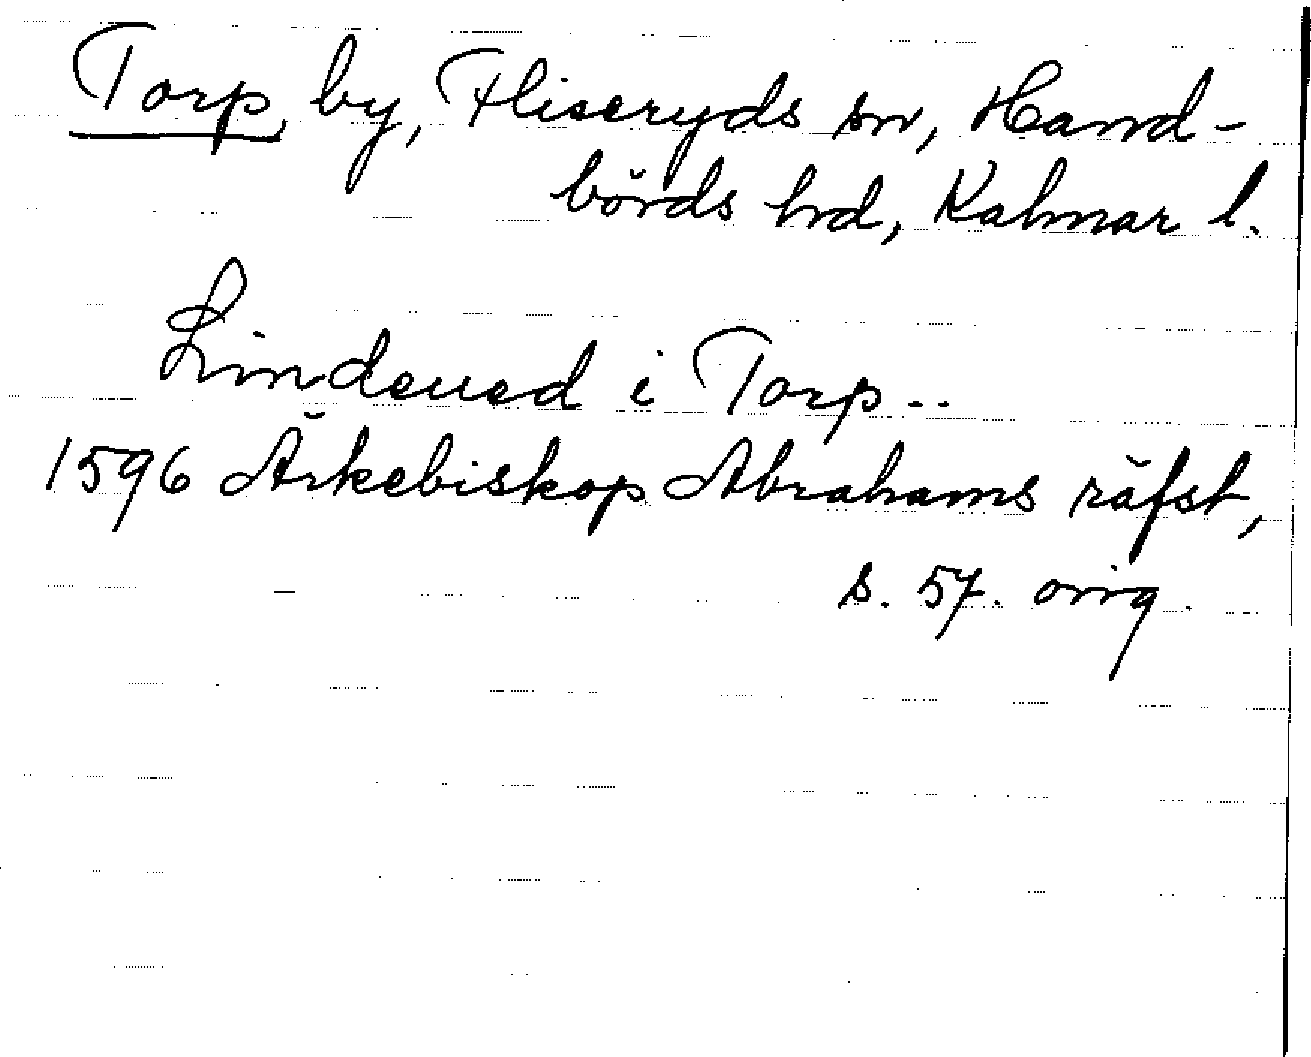 Torp, by, Fliseryds sn, Hand-
börds hrd, Kalmar l.
Lindeued i Torp..
1596 Ärkebiskop Abrahams räfst,
s. 57. orig.